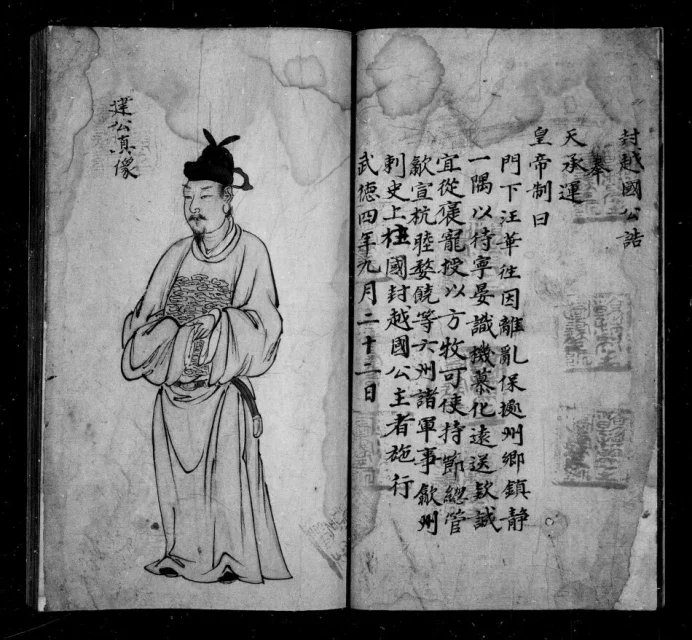 封越國公誥
奉
天承運
皇帝制曰
門下汪華往因離亂保㨿州鄉鎮靜
一隅以待寧晏識機慕化遠送欵誠
宜從褒寵授以方牧可使持節緫管
歙宣杭睦婺饒等六州諸軍事歙州
刺史上柱國封越國公主者施行
武德四年九月二十二日
公真像